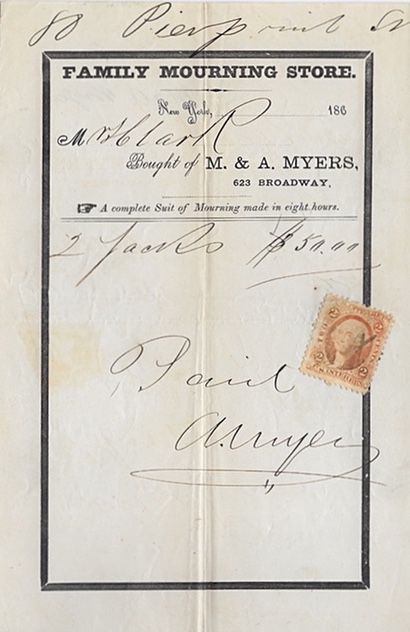 80 Pierpoint St
FAMILY MOURNING STORE.
New York, 186
Mrs Clark
Bought of M. & A. MYERS,
623 BROADWAY,
☞ A complete Suit of Mourning made in eight hours.
2 Jacks $50.00
Paid
A. Myers